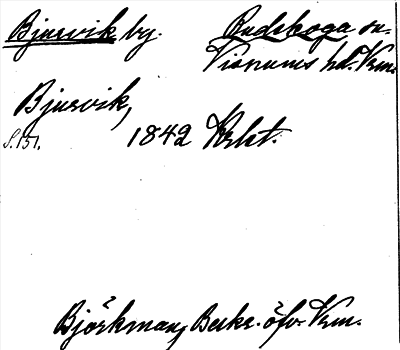 Bjursvik by. Rudskoga sn.
Visnums hd. Vrm.
Bjursvik,
S. 151. 1842 Krkt.
Björkman, Beskr. öfv. Vrm.